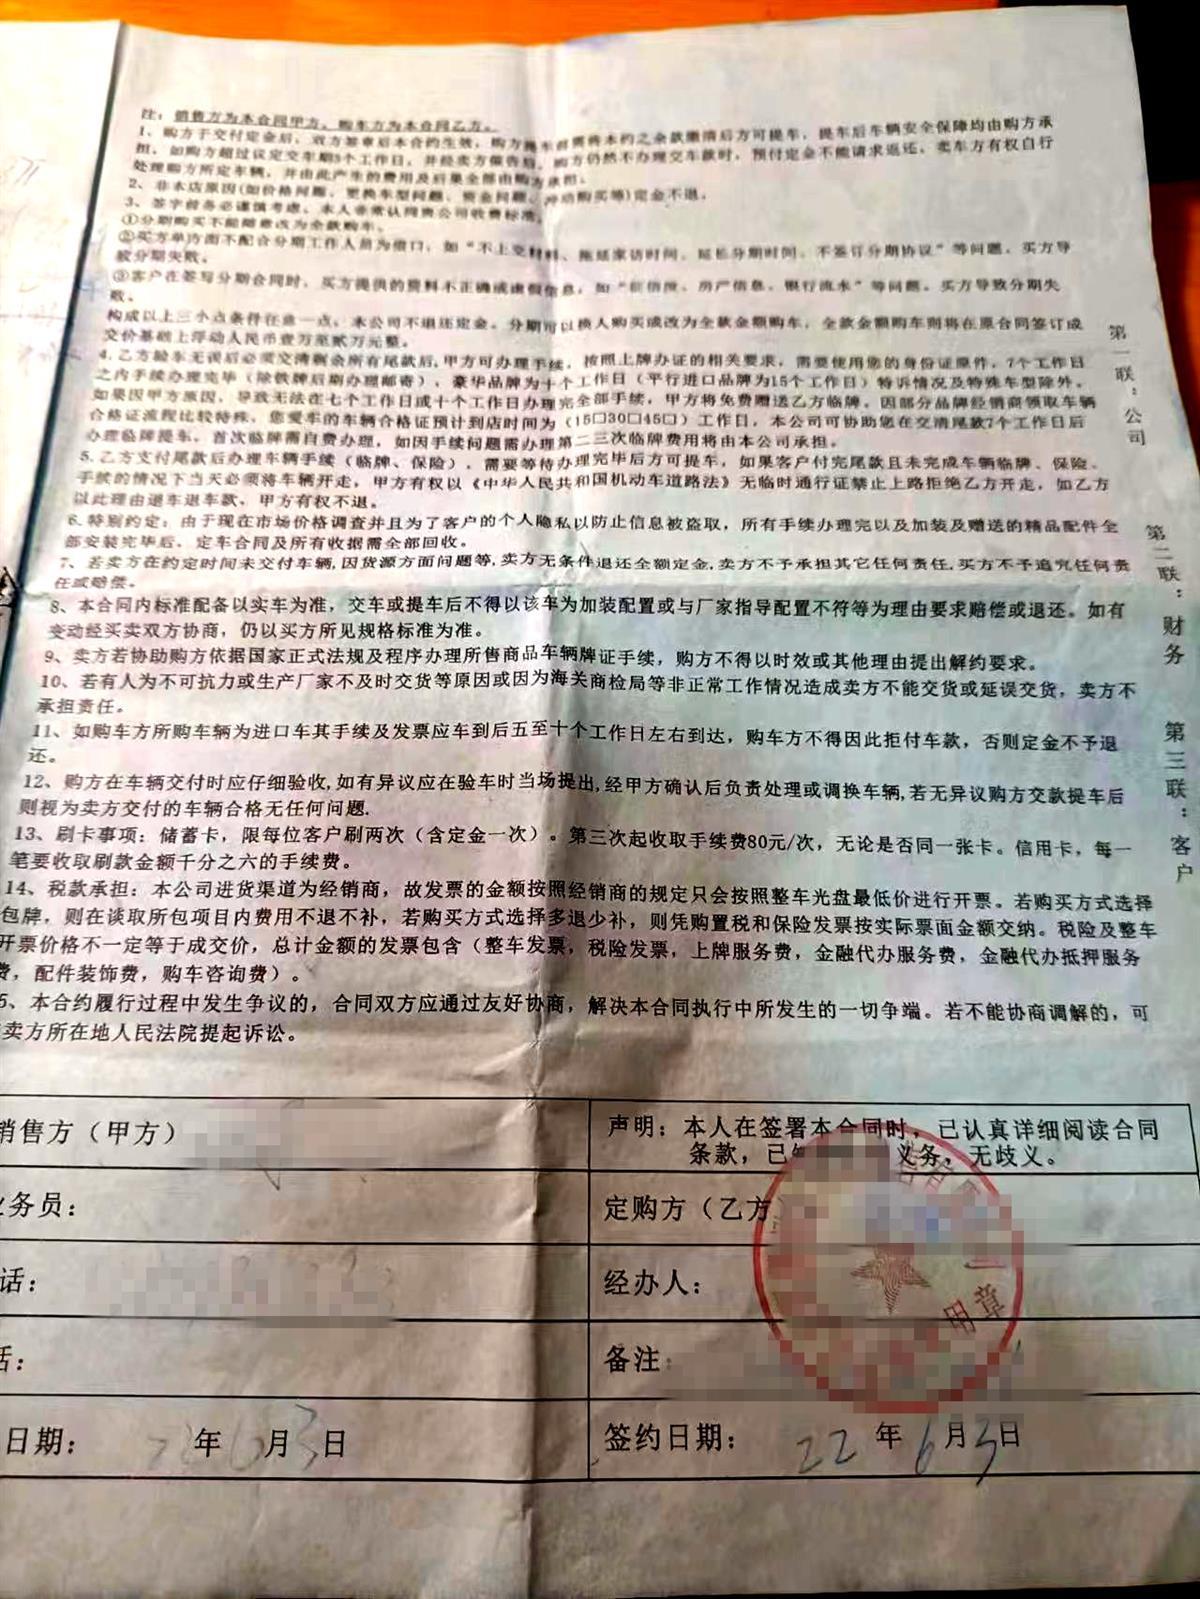 注：销售方为本合同甲方，购车方为本合同乙方。
1、购方于交付定金后，双方签章后本合约生效，购方提车前需将本约之余款缴清后方可提车，提车后车辆安全保障均由购方承
担，如购方超过议定交车期5个工作日，并经卖方催告后，购方仍然不办理交车款时，预付定金不能请求返还，卖车方有权自行
处理购方所定车辆，并由此产生的费用及后果全部由购方承担。
2、非本店原因(如价格问题、更换车型问题、资金问题、冲动购买等)定金不退。
3、签字前务必谨慎考虑，本人非常认同贵公司收费标准。
①分期购买不能随意改为全款购车。
②买方单方面不配合分期工作人员为借口，如“不上交材料、拖延家访时间、延长分期时间、不签订分期协议”等问题，买方导
致分期失败。
③客户在签写分期合同时，买方提供的资料不正确或虚假信息，如“征信度、房产信息、银行流水”等问题，买方导致分期失
败。
构成以上三小点条件任意一点，本公司不退还定金。分期可以换人购买或改为全款金额购车，全款金额购车则将在原合同签订成
交价基础上浮动人民币壹万至贰万元整。
4.乙方验车无误后必须交清剩余所有尾款后,甲方可办理手续，按照上牌办证的相关要求，需要使用您的身份证原件，7个工作日
之内手续办理完毕（除铁牌后期办理邮寄），豪华品牌为十个工作日（平行进口品牌为15个工作日）特诉情况及特殊车型除外。
如果因甲方原因，导致无法在七个工作日或十个工作日办理完全部手续，甲方将免费赠送乙方临牌。因部分品牌经销商领取车辆
合格证流程比较特殊，您爱车的车辆合格证预计到店时间为（15□30□45□）工作日，本公司可协助您在交清尾款7个工作日后
办理临牌提车，首次临牌需自费办理，如因手续问题需办理第二三次临牌费用将由本公司承担。
5.乙方支付尾款后办理车辆手续（临牌、保险），需要等待办理完毕后方可提车，如果客户付完尾款且未完成车辆临牌、保险、
手续的情况下当天必须将车辆开走，甲方有权以《中华人民共和国机动车道路法》无临时通行证禁止上路拒绝乙方开走，如乙方
以此理由退车退车款，甲方有权不退。
6.特别约定：由于现在市场价格调查并且为了客户的个人隐私以防止信息被盗取，所有手续办理完以及加装及赠送的精品配件全
部安装完毕后，定车合同及所有收据需全部回收。
7、若卖方在约定时间未交付车辆,因货源方面问题等,卖方无条件退还全额定金,卖方不予承担其它任何责任,买方不予追究任何责
任或赔偿。
8、本合同内标准配备以实车为准，交车或提车后不得以该车为加装配置或与厂家指导配置不符等为理由要求赔偿或退还。如有
变动经买卖双方协商，仍以买方所见规格标准为准。
9、卖方若协助购方依据国家正式法规及程序办理所售商品车辆牌证手续，购方不得以时效或其他理由提出解约要求。
10、若有人为不可抗力或生产厂家不及时交货等原因或因为海关商检局等非正常工作情况造成卖方不能交货或延误交货，卖方不
承担责任。
11、如购车方所购车辆为进口车其手续及发票应车到后五至十个工作日左右到达，购车方不得因此拒付车款，否则定金不予退
还。
12、购方在车辆交付时应仔细验收,如有异议应在验车时当场提出,经甲方确认后负责处理或调换车辆,若无异议购方交款提车后
则视为卖方交付的车辆合格无任何问题.
13、刷卡事项：储蓄卡，限每位客户刷两次（含定金一次）。第三次起收取手续费80元/次，无论是否同一张卡。信用卡，每一
笔要收取刷款金额千分之六的手续费。
14、税款承担：本公司进货渠道为经销商，故发票的金额按照经销商的规定只会按照整车光盘最低价进行开票。若购买方式选择
包牌，则在谈取所包项目内费用不退不补，若购买方式选择多退少补，则凭购置税和保险发票按实际票面金额交纳。税险及整车
开票价格不一定等于成交价，总计金额的发票包含（整车发票，税险发票，上牌服务费，金融代办服务费，金融代办抵押服务
费，配件装饰费，购车咨询费）。
5、本合约履行过程中发生争议的，合同双方应通过友好协商，解决本合同执行中所发生的一切争端。若不能协商调解的，可
卖方所在地人民法院提起诉讼。
第一联：公司
第二联：财务
第三联：客户
销售方（甲方）
声明：本人在签署本合同时，已认真详细阅读合同
条款，已 义务，无歧义。
业务员：
定购方（乙方
话：
经办人：
话：
备注：
用章
日期： 22年6月3日
签约日期： 22年6月3日